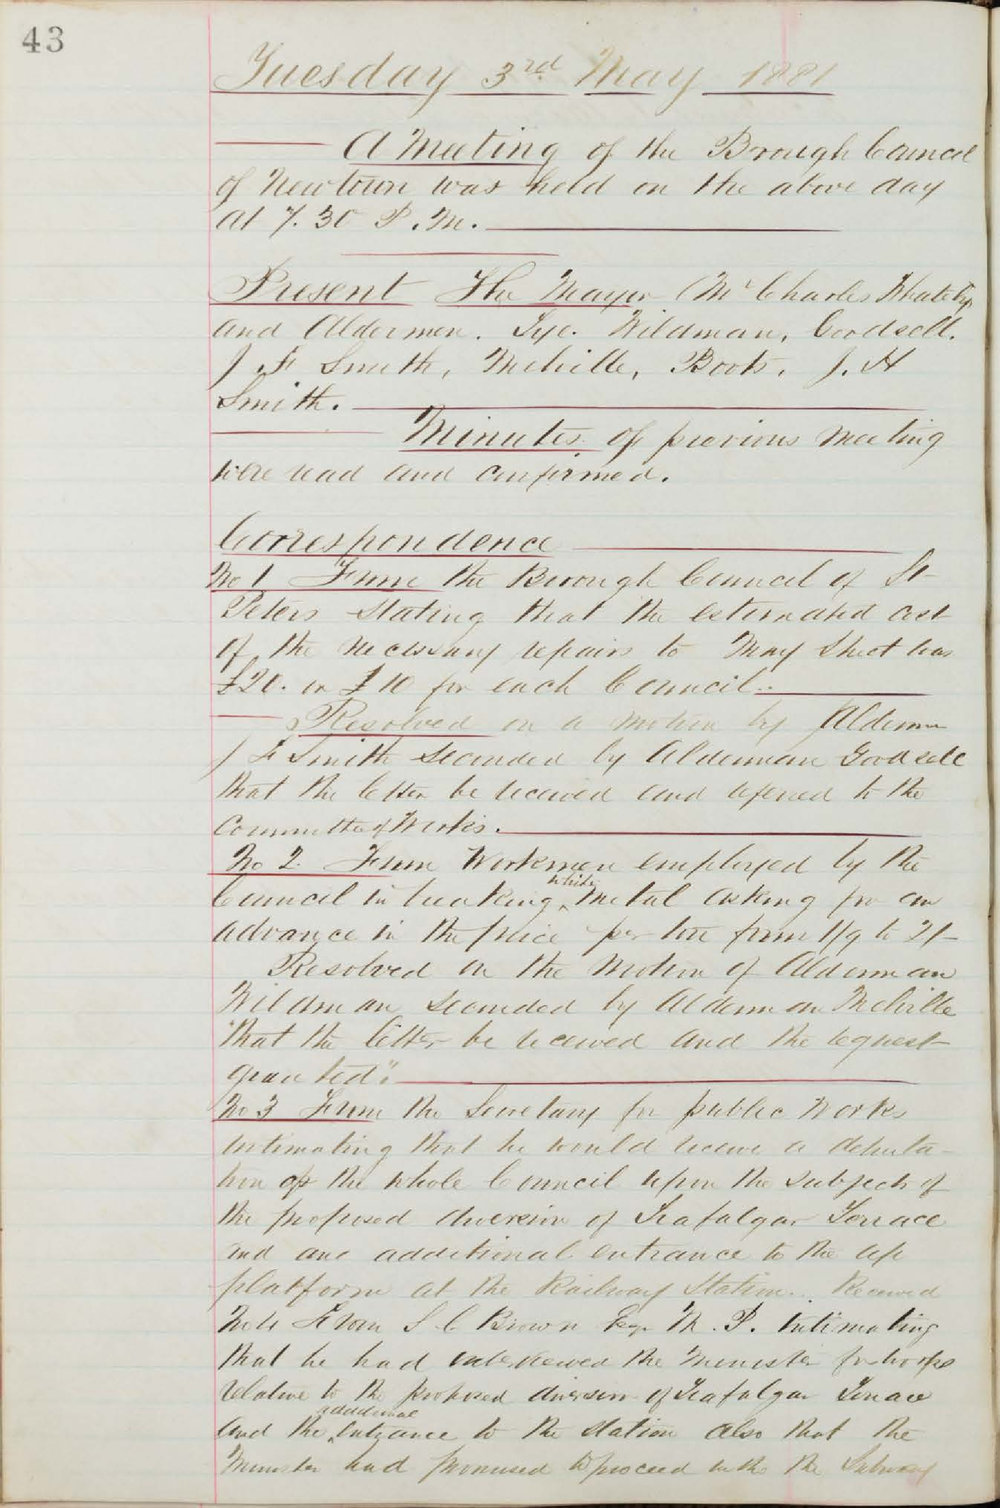 43
Tuesday 3rd May 1881
A Meeting of the Borough Council
of Newtown was held on the above day
at 7.30 P.M.
Present The Mayor (Mr Charles Whately
and Aldermen. Tye. Wildman, Goodsell.
J F Smith, Melville, Boots, J. H
Smith.
Minutes of previous meeting
were read and confirmed.
Correspondence
No 1 From the Borough Council of St
Peters stating that the estimated cost
of the necessary repairs to May Street was
£20. or £10 for each Council.
Resolved on a motion by Alderman
J F Smith seconded by Alderman Goodsell
that the letter be received and referred to the
Committee of Works.
No 2 From Workmen employed by the
Council in breaking white metal asking for an
advance in the price per ton from 1/9 to 2/-
Resolved on the motion of Alderman
Wildman seconded by Alderman Melville
"that the letter be received and the request
granted".
No 3 From the Secretary for public Works
intimating that he would receive a deputa-
tion of the whole Council upon the subject of
the proposed diversion of Trafalgar Terrace
and an additional entrance to the up
platform at the Railway Station. Received
No 4 From S C Brown Esqr M.P. intimating
that he had interviewed the Minister for works
relative to the proposed diversion of Trafalgar Terrace
and the additional entrance to the station also that the
Minister had promised to proceed with the Subway